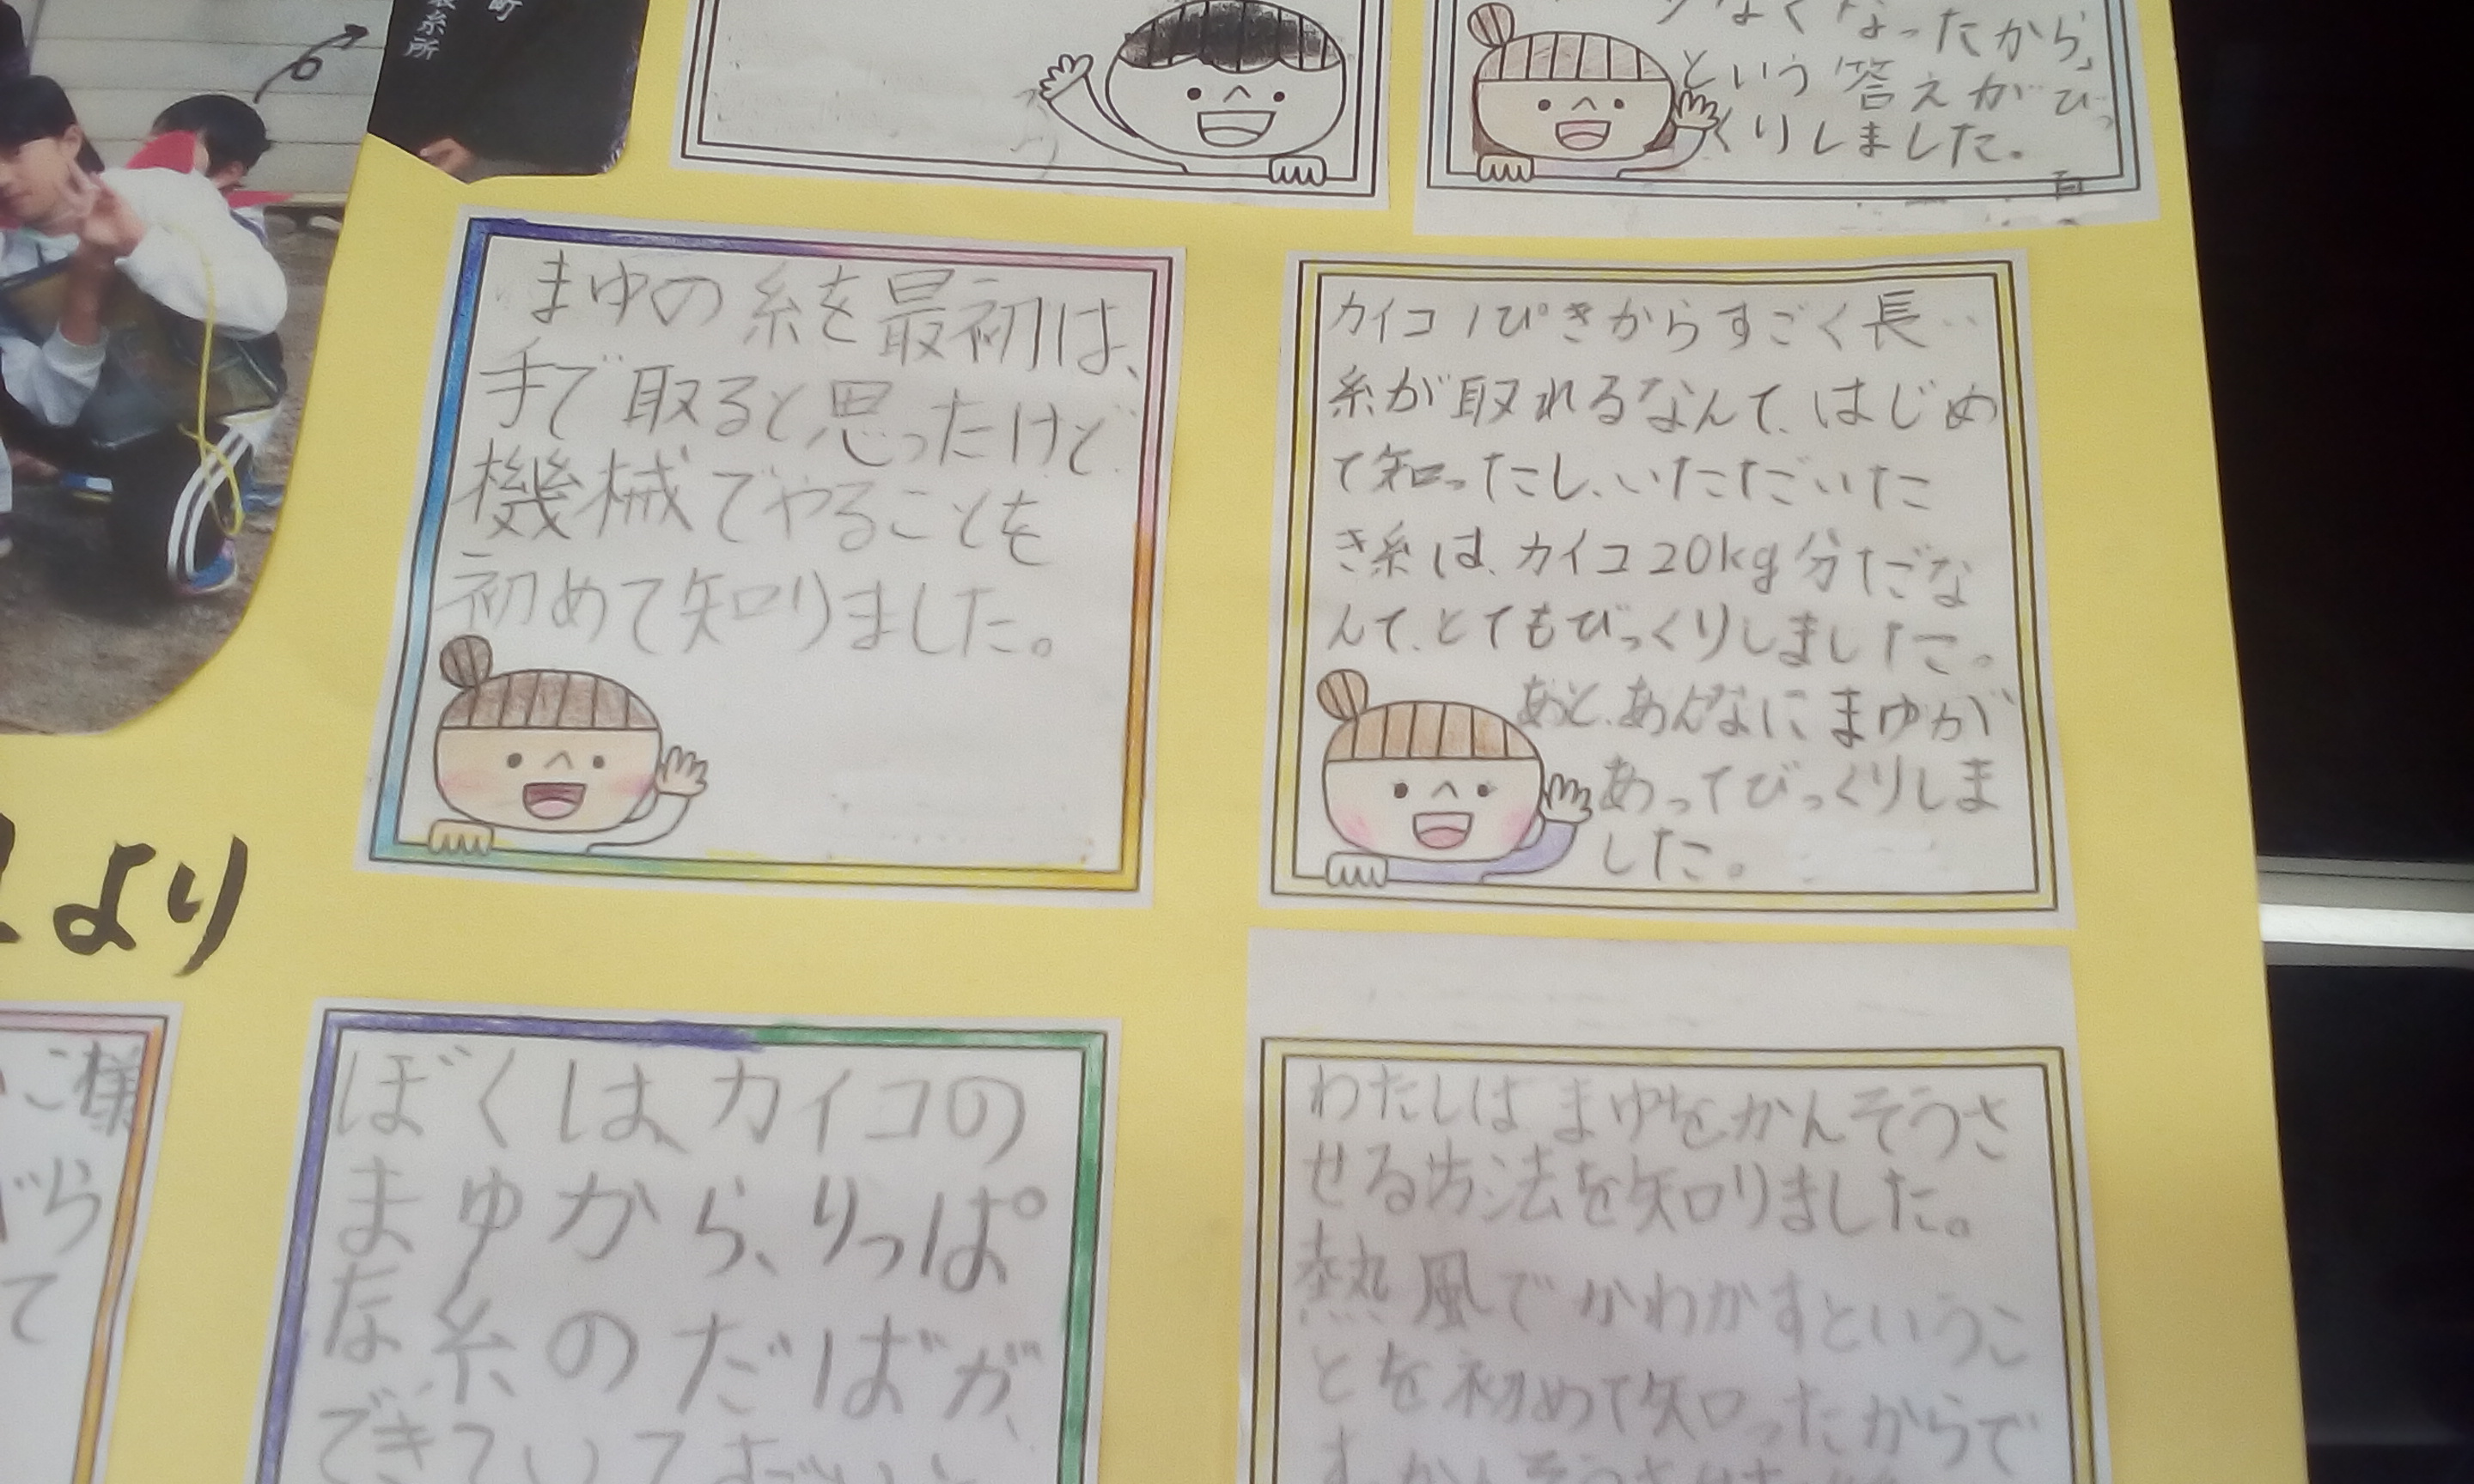 糸所
なくなったから」
という答えがびっ
くりしました。
まゆの糸を最初は、
手で取ると思ったけど
機械でやることを
初めて知りました。
カイコ1ぴきからすごく長
糸が取れるなんて、はじめ
て知ったし、いただいた
き糸は、カイコ20kg分だな
んて、とてもびっくりしました。
あと、あんなにまゆが
あってびっくりしま
した。
より
こ様
がら
て
ぼくは、カイコの
まゆから、りっぱ
な糸のたばが、
できていて
わたしはまゆをかんそうさ
せる方法を知りました。
熱風でかわかすというこ
とを初めて知ったからで
す